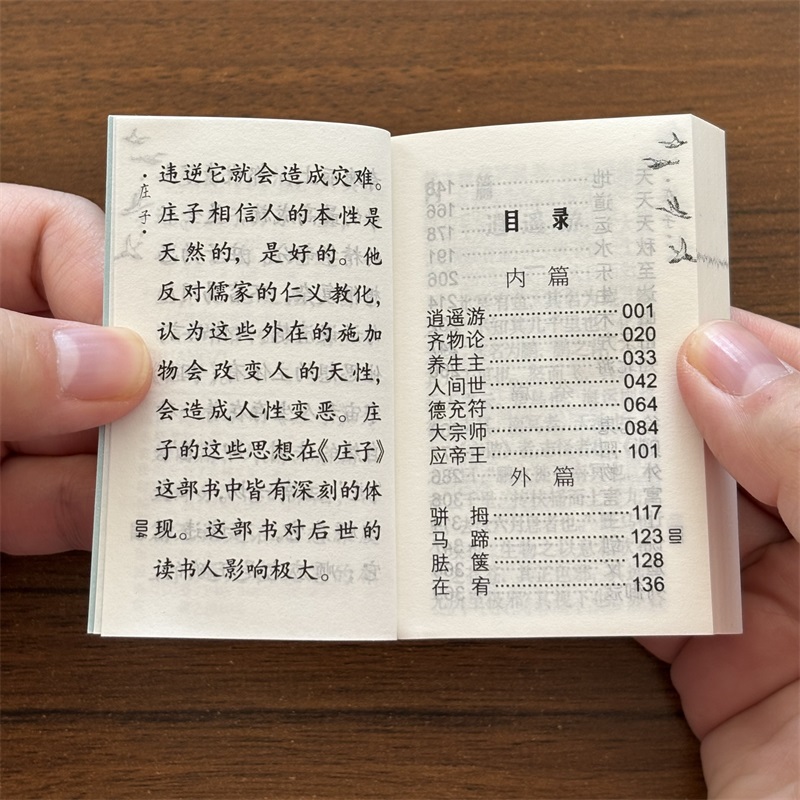 ·庄子·
违逆它就会造成灾难。
庄子相信人的本性是
天然的，是好的。他
反对儒家的仁义教化，
认为这些外在的施加
物会改变人的天性，
会造成人性变恶。庄
子的这些思想在《庄子》
这部书中皆有深刻的体
现。这部书对后世的
读书人影响极大。
004
目录
内篇
逍遥游……………001
齐物论……………020
养生主……………033
人间世……………042
德充符……………064
大宗师……………084
应帝王……………101
外篇
骈拇……………117
马蹄……………123
胠箧……………128
在宥……………136
001